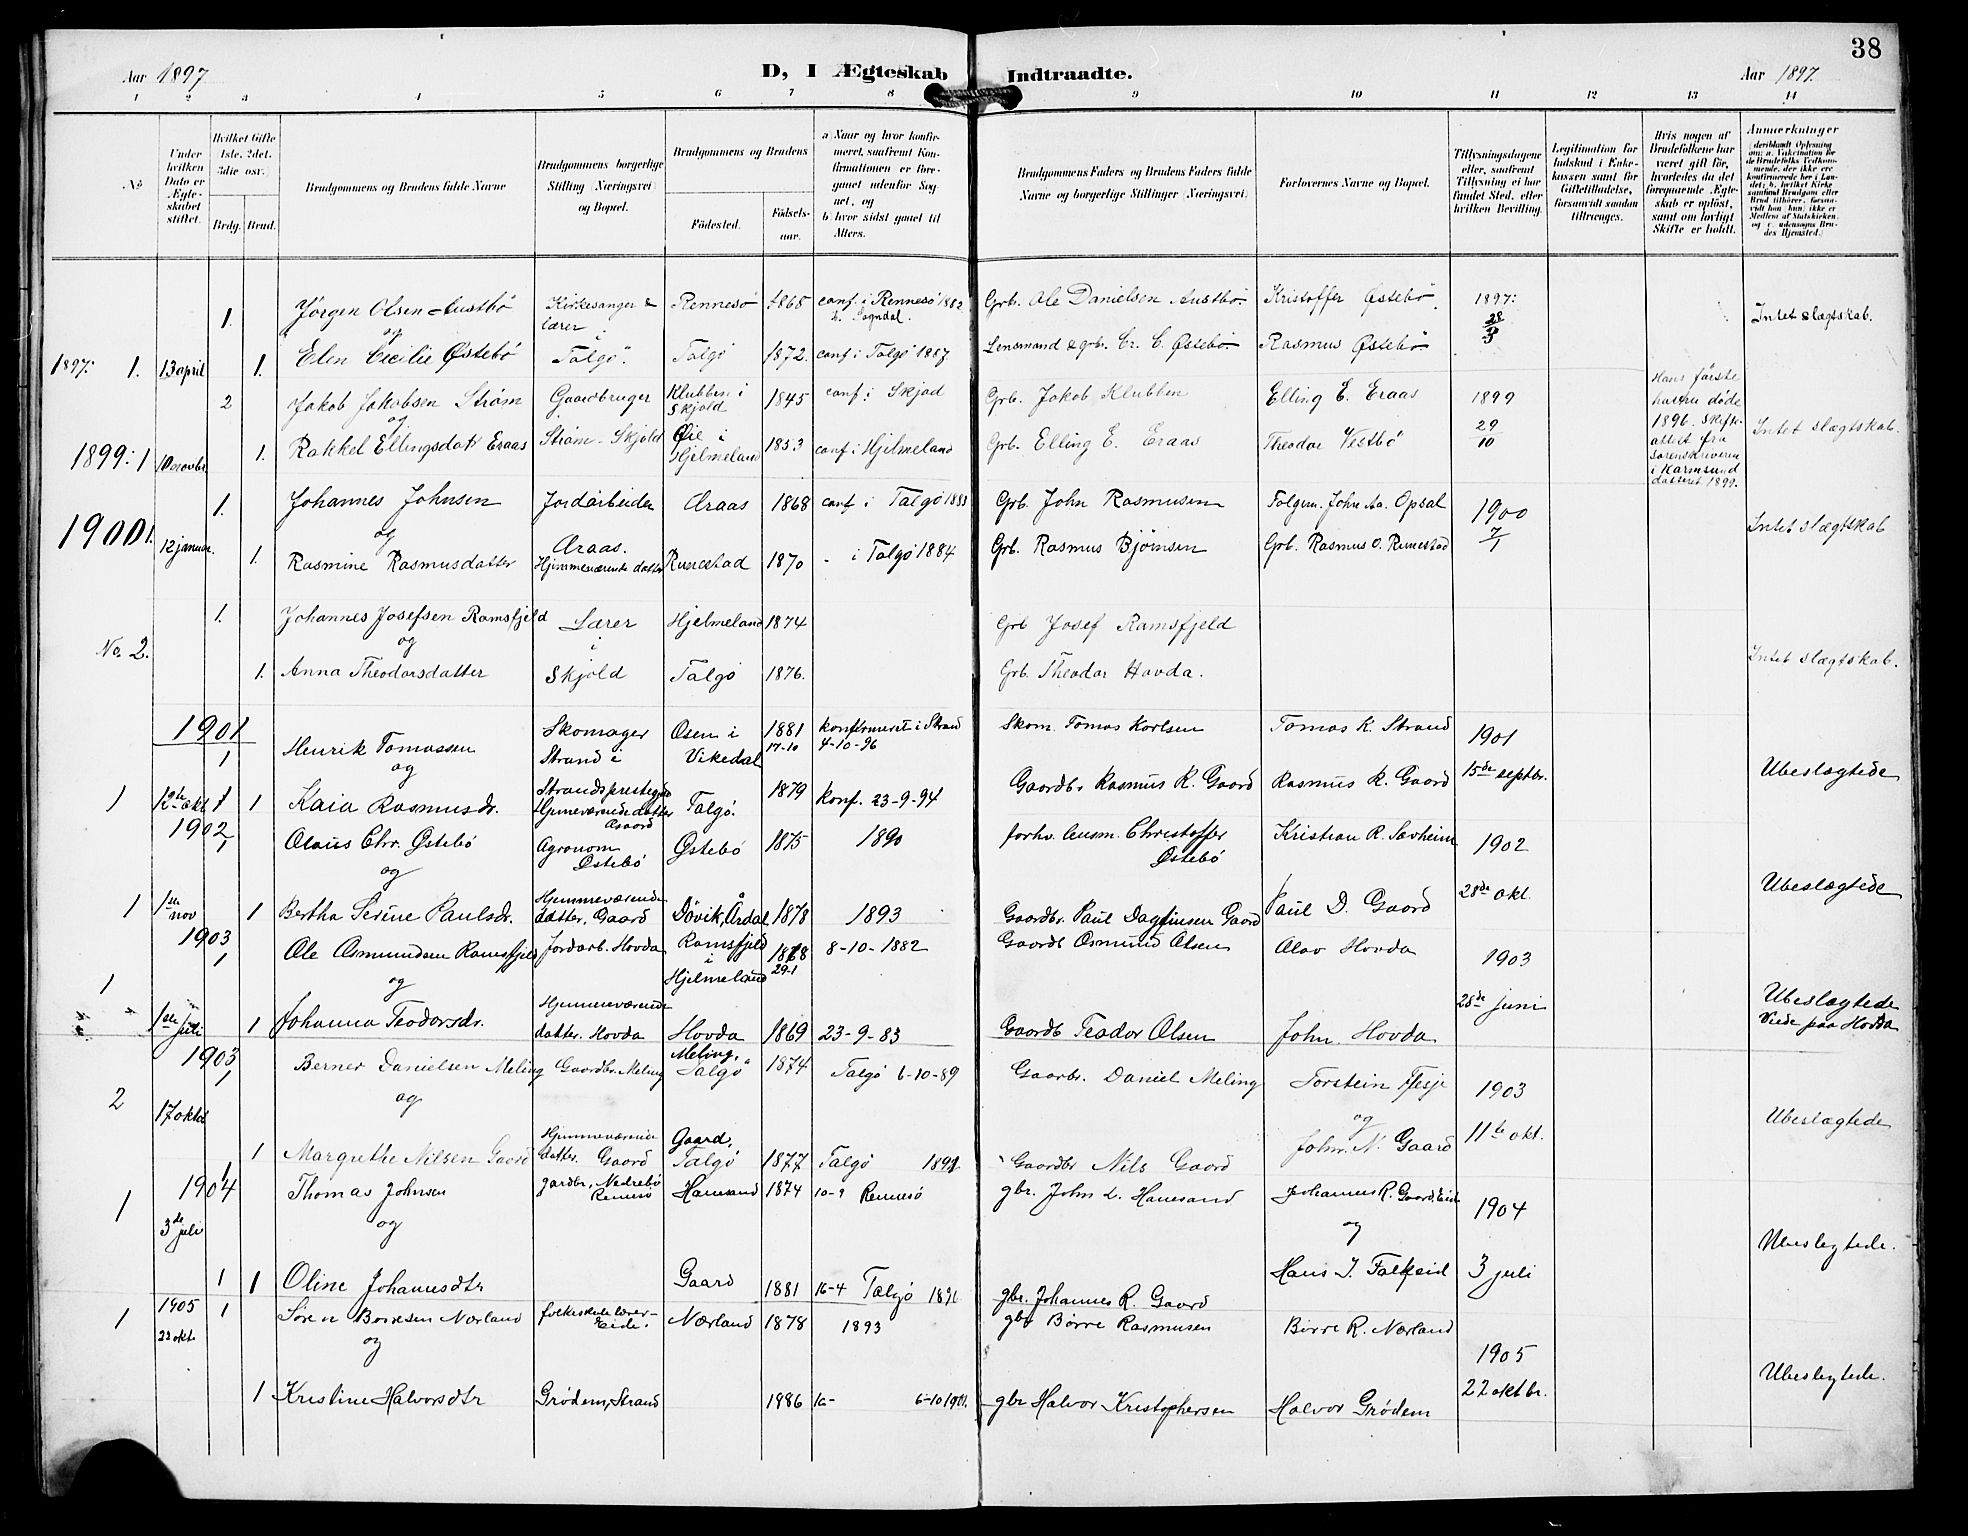 38
Aar 1897
D, I Ægteskab Indtraadte.
Aar 1897.
1 2 3 4 5 6 7 8 9 10 11 12 13 14
No
Under hvilken Dato er Ægteskabet stiftet.
Hvilket Gifte 1ste, 2det, 3die osv.)
Brdg. Brud.
Brudgommens og Brudens fulde Navne
Brudgommens borgerlige Stilling (Næringsvei) og Bopæl.
Brudgommens og Brudens
Fødested.
Fødselsaar.
a Naar og hvor konfirmeret, saafremt Konfirmationen er foregaaet udenfor Sognet, og
b hvor sidst gaaet til Alters.
Brudgommens Faders og Brudens Faders fulde Navne og borgerlige Stillinger (Næringsvei)
Forlovernes Navne og Bopæl.
Tillysningsdagene eller, saafremt Tillysning ei har fundet Sted, efter hvilken Bevilling.
Legitimation for Indskud i Enkekassen samt for Giftetilladelse, forsaavidt saadan tiltrænges.
Hvis nogen af Brudefolkene har været gift før, hvorledes da det foregaaende Ægteskab er opløst, samt om lovligt Skifte er holdt.
Anmærkninger
(deriblandt Oplysning om: a. Vakcination for de Brudefolks Vedkommende, der ikke ere konfirmerede her i Landet; b. hvilket Kirkesamfund Brudgom eller Brud tilhører, forsaavidt han (hun) ikke er Medlem af Statskirken, og c. udensogns Brudes Hjemsted.)
1. Jørgen Olsen Austbø Kirkesanger & lærer Rennesø 1868 conf. i Rennesø 1882 b. Sogndal. Grb. Ole Danielsen Austbø. Kristoffer Østebø 1897: 28/3 Intet slægtskab.
og i
1897: 1. 13 april 1. Elen Cecilie Østebø Talgø. Talgø 1872. conf i Talgø 1887 Lensmand & grb. Cr. C. Østebø. Rasmus Østebø
2 Jakob Jakobsen Strøm Gaardbruger Klubben i Skjold 1845 conf. i Skjold Grb. Jakob Klubben Elling E. Eraas 1899 Hans første hustru døde 1896. Skifteattest fra sorenskriveren i Karmsund dateret 1899.
og
1899: 1 10 novbr. 1. Rakkel Ellingsdatr Eraas Strøm - Skjold Øie i Hjelmeland 1853 conf i Hjelmeland Grb. Elling E. Eraas Theodor Vestbø 29/10 Intet slægtskab.
1. Johannes Johnsen Jordarbeider Araas 1868 conf i Talgø 1883 Grb. John Rasmusen Folgm. John Aa. Opsal 1900 Intet slægtskab
og Araas.
1900 1. 12 januar. 1. Rasmine Rasmusdatter Hjemmeværende datter Runestad 1870 - i Talgø 1884 Grb. Rasmus Bjørnsen Grb. Rasmus O. Runestad 7/1
1. Johannes Josefsen Ramsfjeld Lærer Hjelmeland 1874 Grb Josef Ramsfjeld
No. 2. og i Intet slægtskab.
1. Anna Theodorsdatter Skjold Talgø 1876. Grb. Theodor Hovda.
1901
1 Henrik Tomassen Skomager Strand i Osen i Vikedal 1881 17-10 konfirmeret i Strand 4-10-96 Skom. Tomas Karlsen Tomas K. Strand 1901
og Strandspresteg. 15de septbr. Ubeslægtede
1 12te okt 1 Kaia Rasmusdr. Hjemeværende datter Gaard Talgø. 1879 konf. 23-9-94 Gaardb. Rasmus R. Gaard Rasmus R. Gaard
1902
1 Olaus Chr. Østebø Agronom Østebø Østebø 1875 1890 forhv. lensm. Christoffer Østebø Kristian R. Sævheim 1902
og
1 1ste nov 1 Bertha Serine Paulsdr. Hjemmeværende datter, Gaard Døvik, Årdal 1878 1893 Gaardbr. Paul Dagfinsen Gaard Paul D. Gaard 28de okt. Ubeslægtede
1903
1 Ole Osmundsen Ramsfjeld Jordarb. Hovda Ramsfjeld i Hjelmeland 1868 29-1 8-10-1882 Gaardb Osmund Olsen Olav Hovda 1903
og
1 1ste juli 1 Johanna Teodorsdr. Hjemmeværende datter. Hovda Hovda 1869 23-9-83 Gaardb Teodor Olsen John Hovda 28de juni Ubeslægtede Viede paa Hovda
1903
1 Berner Danielsen Meling Gaardbr. Meling Meling, Talgø 1874 Talgø 6-10-89 Gaarbr. Daniel Meling Torstein Tesje 1903
2 17 oktbr og og Ubeslægtede
1 Margrethe Nilsen Gaard Hjemmeværende datter. Gaard Gaard, Talgø 1877 Talgø 1891 Gaardbr Nils Gaard John. N. Gaard 11te okt.
1904
1 Thomas Johnsen gardbr. Nedrebø Rennesø Hanesand 1874 10-9 Rennesø gbr. John L. Hanesand Johannes R. Gaard, Eide 1904
1 3de juli og og Ubeslegtede.
1 Oline Johannesdtr Gaard 1881 16-4 Talgø 1896 gbr. Johannes R. Gaard Hans J. Falkeid 3 juli
1905
1 22 okt. 1 Søren Børresen Nærland folkeskolelærer - Eide. Nærland 1878 1893 gbr Børre Rasmusen Børre R. Nærland
og 1905
1 Kristine Halvorsdtr Grødem, Strand 1886 6-10 1901. gbr Halvor Kristophersen Halvor Grødem 22 oktbr. Ubeslegtede.